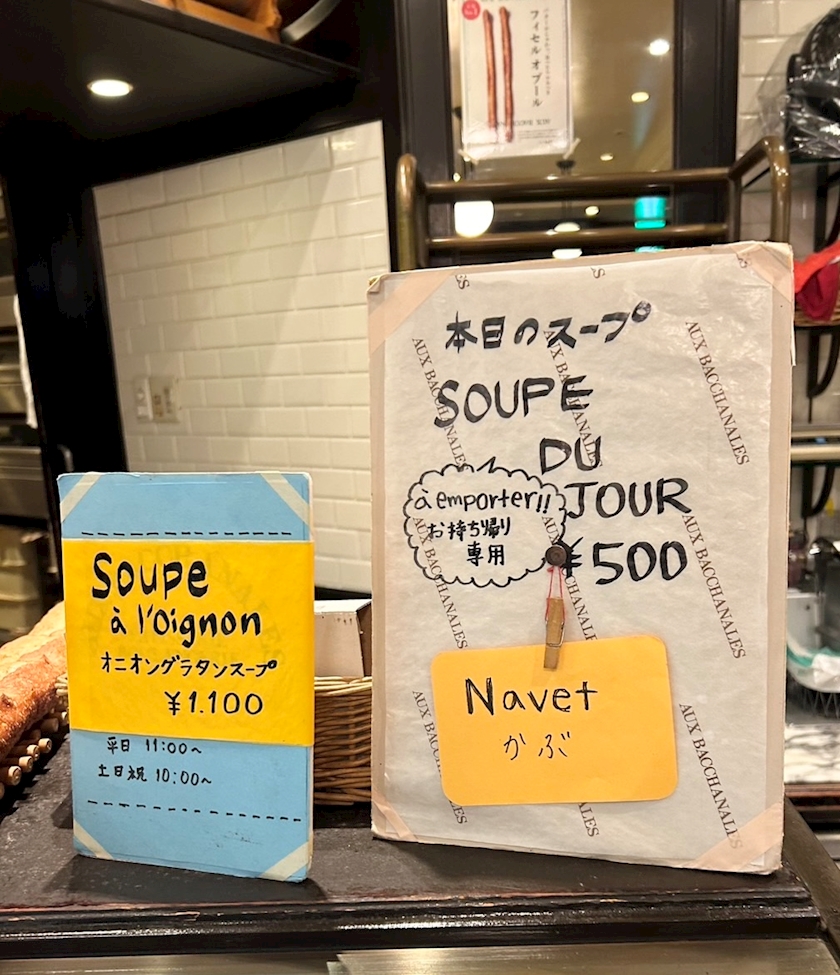 フィセル オ ブール
Soupe
à l'oignon
オニオングラタンスープ
¥1.100
平日 11:00~
土日祝 10:00~
本日のスープ
SOUPE
DU
JOUR
¥500
à emporter!!
お持ち帰り
専用
Navet
かぶ
AUX BACCHANALES
AUX BACCHANALES
AUX BACCHANALES
AUX BACCHANALES
AUX BACCHANALES
AUX BACCHANALES